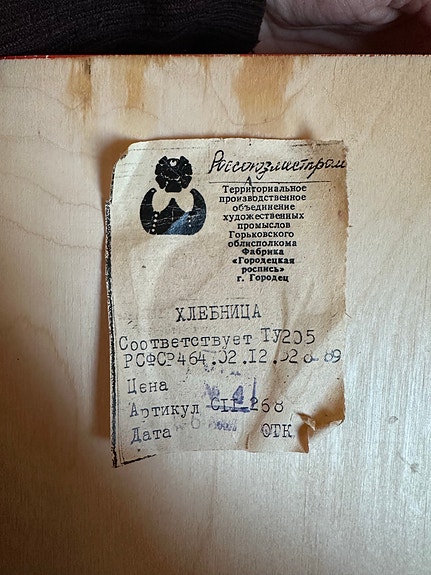 Территориальное
производственное
объединение
художественных
промыслов
Горьковского
облисполкома
Фабрика
«Городецкая
роспись»
г. Городец
ХЛЕБНИЦА
Соответствует ТУ205
РСФСР464.02.12.02
Цена
Артикул СП 268
Дата ОТК